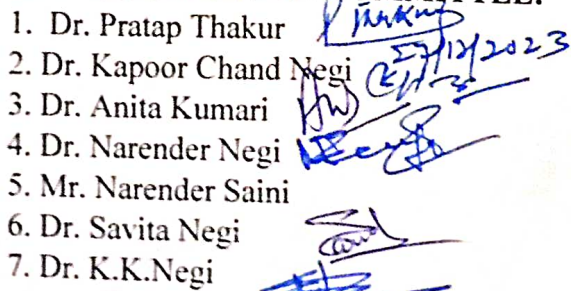 1. Dr. Pratap Thakur Thakur
27/12/2023
2. Dr. Kapoor Chand Negi
3. Dr. Anita Kumari
4. Dr. Narender Negi
5. Mr. Narender Saini
6. Dr. Savita Negi
7. Dr. K.K.Negi